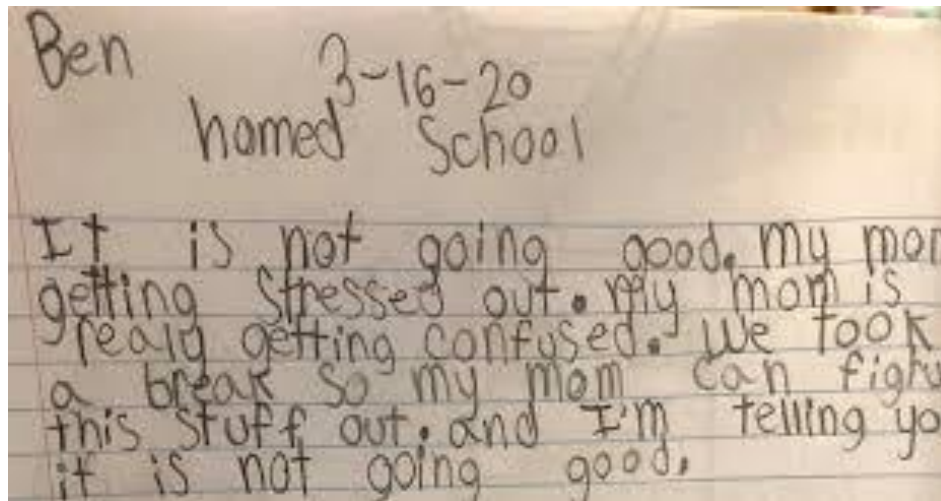 Ben
3-16-20
homed School
It is not going good. my mom
getting stressed out. My mom is
realy getting confused. We took
a break so my mom can figu
this stuff out. and I'm telling yo
it is not going good.